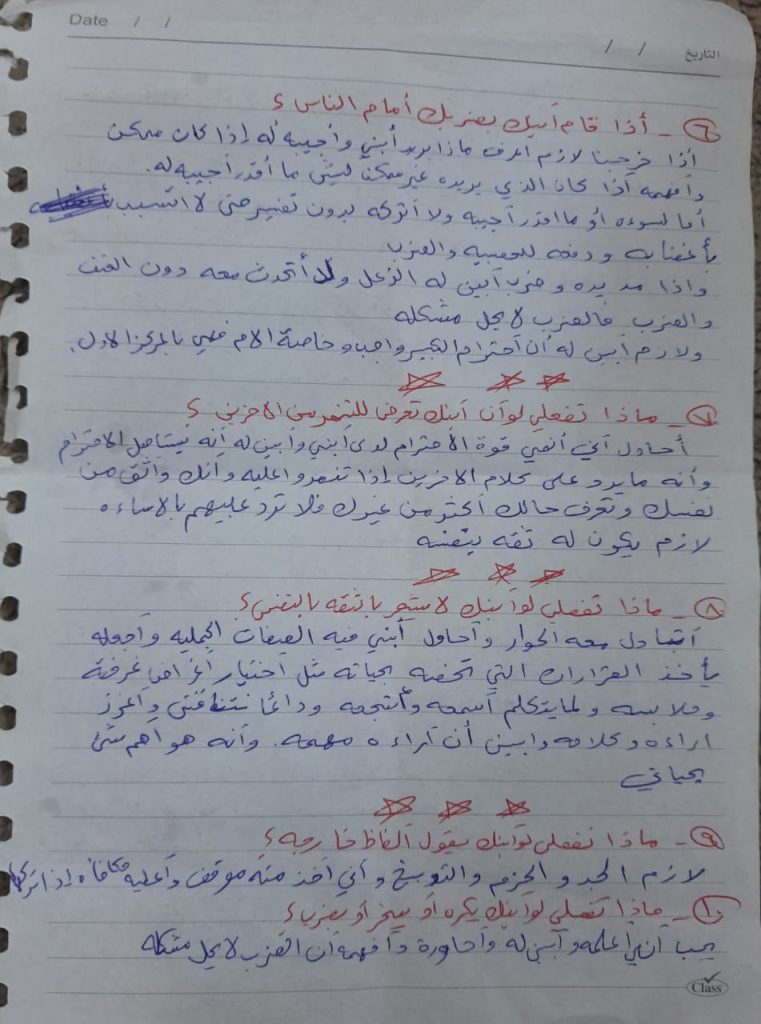 Date / /
/ / التاريخ
٦- أذا قام أبنك بضربك أمام الناس؟
أذا خرجنا لازم أعرف ماذا يريد أبني وأجيبه له إذا كان ممكن
وأفهمه أذا كان الذي يريده غير ممكن ليش ما أقدر أجيبه له.
أما لسوءه أو ما اقدر أجيبه ولا أتركه بدون تفسير حتى لا اتسبب
بأغضابه ودفعه للعصبيه والضرب
واذا مد يده وضرب أبين له الزعل ولا أتحدث معه دون العنف
والضرب فالضرب لا يحل مشكله
ولازم أبين له أن أحترام الكبير واجب وخاصة الام فهي بالمركز الاول.
٧- ماذا تفعلي لو أن أبنك تعرض للتنمر من الاخرين؟
أحاول أني أنمي قوة الأحترام لدى أبني وأبين له أنه يستاهل الاحترام
وأنه مايرد على كلام الاخرين إذا تنمروا عليه وأنك واثق من
نفسك وتعرف حالك أكثر من غيرك فلا ترد عليهم بالاساءه
لازم يكون له ثقه بنفسه
٨- ماذا تفعلي لو أبنك لا يشعر باثقه بالنفس؟
أتبادل معه الحوار وأحاول أبني فيه الصفات الجميله وأجعله
يأخذ القرارات التي تخصه بحياته مثل أختيار أغراض غرفتة
وملابسه ولما يتكلم أسمعه وأشجعه ودائما نتناقش وأعزز
اراءه وكلامه وابين أن آراءه مهمه. وأنه هو أهم شئ
بحياتي
٩- ماذا تفعلي لو أبنك يقول ألفاظ خارجه؟
لازم الجد والحزم والتوبيخ وأني آخذ منه موقف وأعطيه مكافأه إذا تركها
١٠- ماذا تفعلي لو أبنك يكره أو يضرب؟
يجب أني أعلمه وأبين له وأحاورة وأفهمه أن الضرب لا يحل مشكله
Class